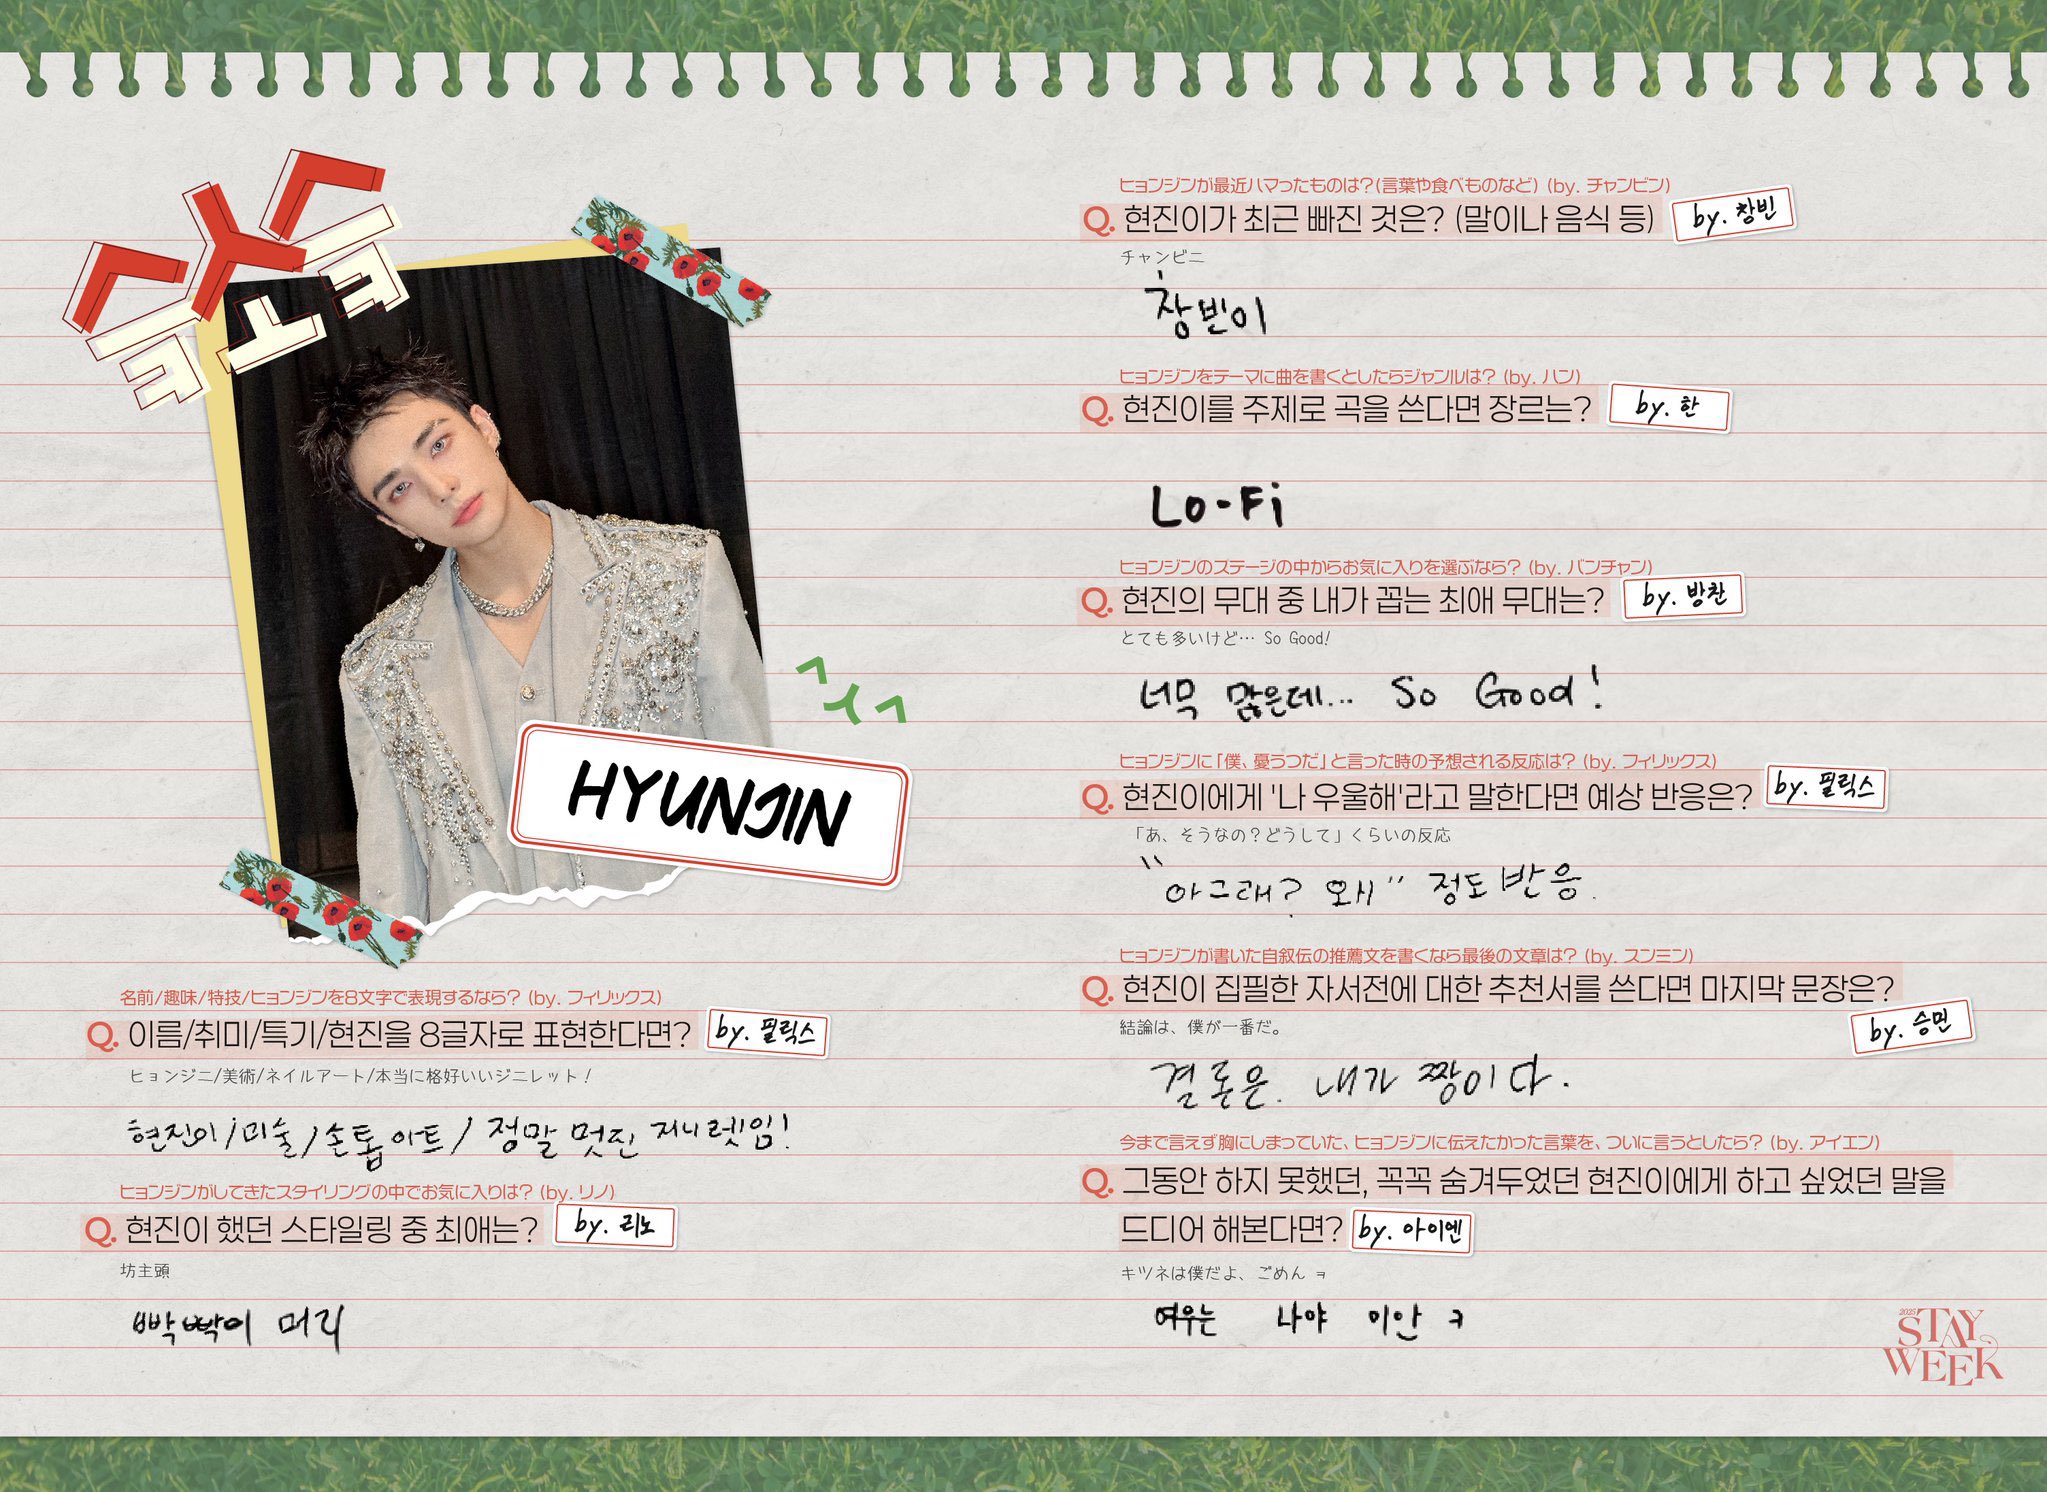 HYUNJIN
名前/趣味/特技/ヒョンジンを8文字で表現するなら? (by. フィリックス)
Q. 이름/취미/특기/현진을 8글자로 표현한다면? by. 필릭스
ヒョンジニ/美術/ネイルアート/本当に格好いいジニレット!
현진이/미술/손톱아트/정말 멋진 지니렛임!
ヒョンジンがしてきたスタイリングの中でお気に入りは? (by. リノ)
Q. 현진이 했던 스타일링 중 최애는? by. 리노
坊主頭
빡빡이 머리
ヒョンジンが最近ハマったものは?(言葉や食べものなど) (by. チャンビン)
Q. 현진이가 최근 빠진 것은? (말이나 음식 등) by. 창빈
チャンビニ
창빈이
ヒョンジンをテーマに曲を書くとしたらジャンルは? (by. ハン)
Q. 현진이를 주제로 곡을 쓴다면 장르는? by. 한
Lo-Fi
ヒョンジンのステージの中からお気に入りを選ぶなら? (by. バンチャン)
Q. 현진의 무대 중 내가 꼽는 최애 무대는? by. 방찬
とても多いけど… So Good!
너무 많은데... So Good!
ヒョンジンに「僕、憂うつだ」と言った時の予想される反応は? (by. フィリックス)
Q. 현진이에게 '나 우울해'라고 말한다면 예상 반응은? by. 필릭스
「あ、そうなの?どうして」くらいの反応
"아 그래? 왜" 정도 반응.
ヒョンジンが書いた自叙伝の推薦文を書くなら最後の文章は? (by. スンミン)
Q. 현진이 집필한 자서전에 대한 추천서를 쓴다면 마지막 문장은?
by. 승민
結論は、僕が一番だ。
결론은. 내가 짱이다.
今まで言えず胸にしまっていた、ヒョンジンに伝えたかった言葉を、ついに言うとしたら? (by. アイエン)
Q. 그동안 하지 못했던, 꼭꼭 숨겨두었던 현진이에게 하고 싶었던 말을
드디어 해본다면? by. 아이엔
キツネは僕だよ、ごめん ㅋ
여우는 나야 미안 ㅋ
2025
STAY
WEEK